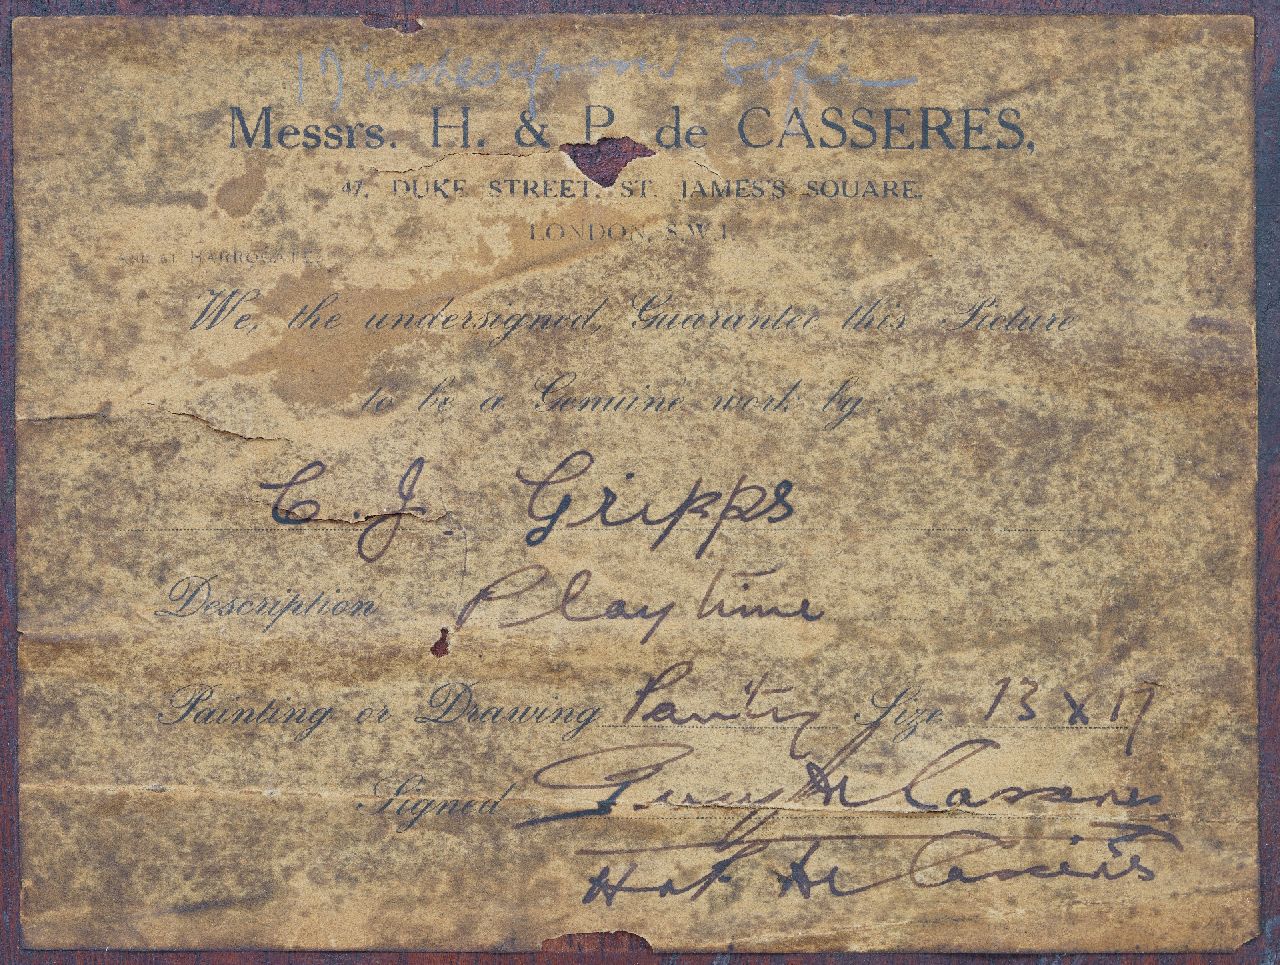 Messrs. H. & P. de CASSERES,
47, DUKE STREET, ST. JAMES'S SQUARE,
LONDON, S.W.1.
HARROGATE
We, the undersigned, Guarantee this Picture
to be a Genuine work by
C. J. Gripps
Description Playtime
Painting or Drawing Painting Size 13 x 17
Signed Percy de Casseres
de Casseres